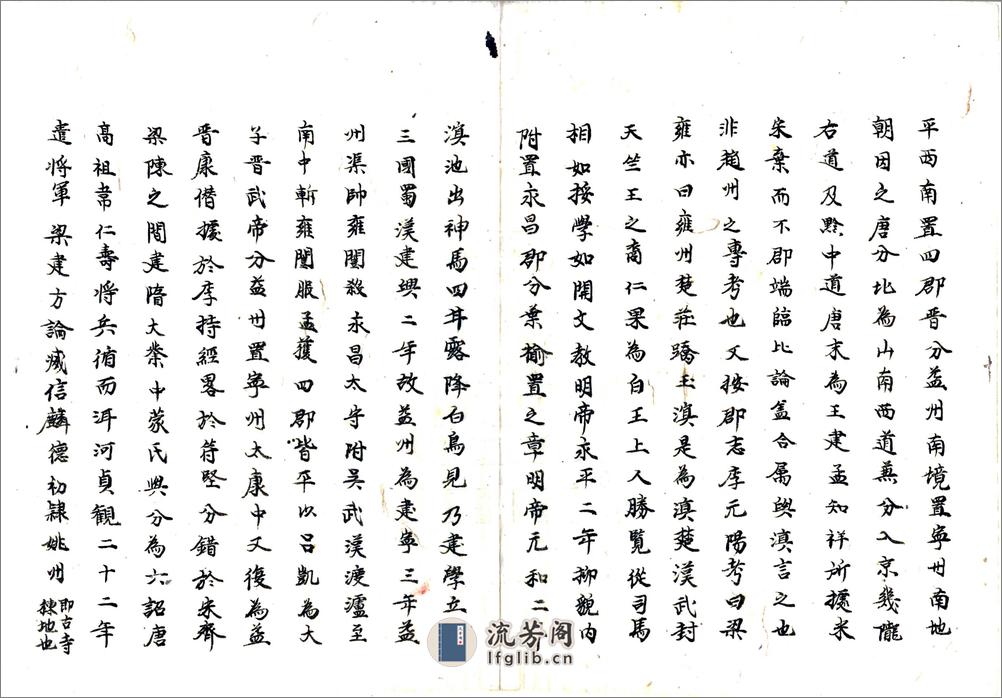 平西南置四郡晋分益州南境置寧州南地
朝因之唐分此為山南西道兼分入京幾隴
右道及黔中道唐末為王建孟知祥所據宋
朱棄而不郡端臨此論盖合属與滇言之也
非趙州之專考也又按郡志李元陽考曰梁
雍亦曰雍州楚荘蹻王滇是為滇楚漢武封
天竺王之裔仁果為白王上人勝覽從司馬
相如授學如開文教明帝永平二年抑貌内
附置永昌郡分葉榆置之章明帝元和二年
滇池出神馬四甘露降白鳥見乃建學立
三國蜀漢建興二年改益州為建寧三年益
州渠帥雍闓殺永昌太守附吴武漢渡瀘至
南中斬雍闓服孟獲四郡皆平以吕凱為大
子晋武帝分益州置寧州太康中又復為益
晋康僭據於李持經畧於苻堅分錯於宋齊
梁陳之間建隋大業中蒙氏興分為六詔唐
高祖常仁壽將兵循而洱河貞観二十二年
遣将軍梁建方論滅信麟德初隸姚州即古寺
棟地也
流芳阁
lfglib.cn